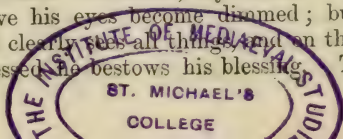 ve his eyes become dimmed ; bu
clearly sees all things, and on th
ssed he bestows his blessing. T
THE INSTITUTE OF MEDIAEVAL STUDI
ST. MICHAEL'S
COLLEGE